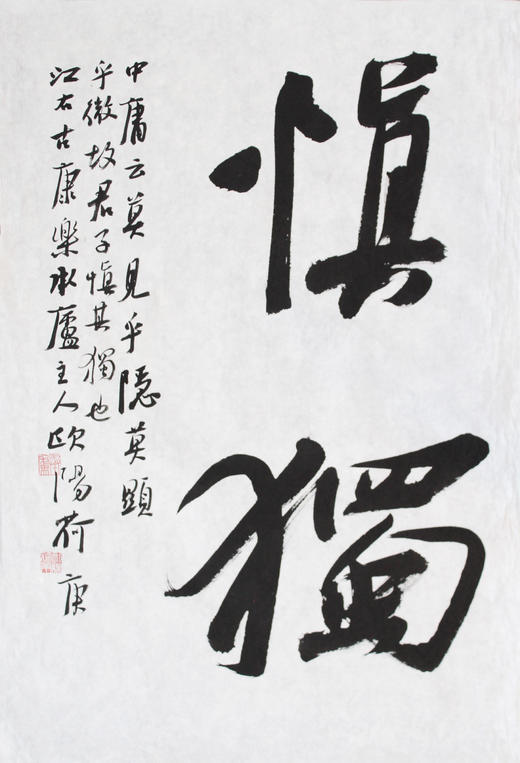 慎獨
中庸云莫見乎隱莫顯
乎微故君子慎其獨也
江右古康樂承廬主人歐陽荷庚